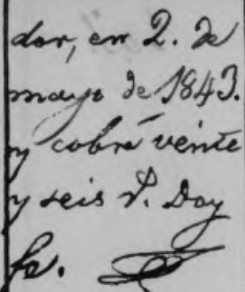 dor, en 2. de
mayo de 1843.
y cobré veinte
y seis r.^s Doy
fe.